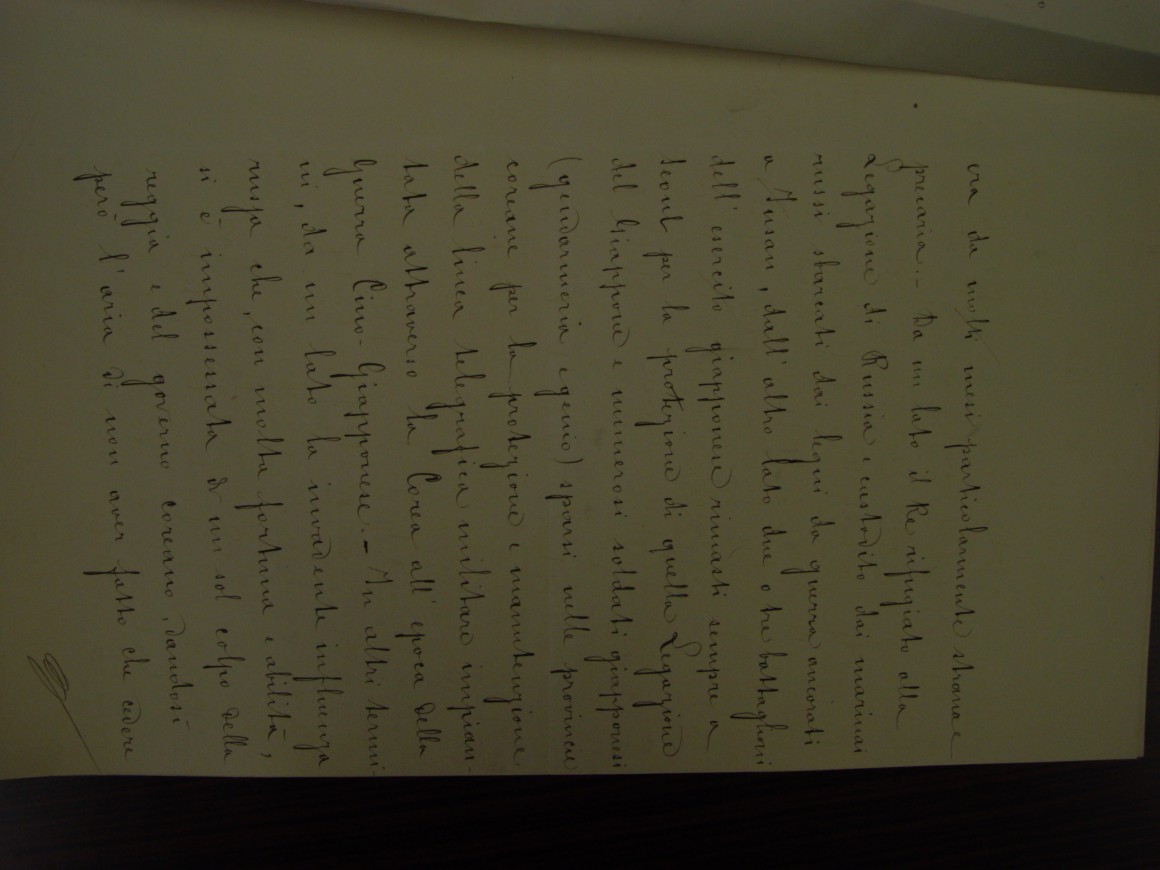 era da molti mesi particolarmente strana e
precaria. - Da un lato il Re rifugiato alla
Legazione di Russia e custodito dai marinai
russi sbarcati dai legni da guerra ancorati
a Fusan, dall'altro lato due o tre battaglioni
dell'esercito giapponese rimasti sempre a
Seoul per la protezione di quella Legazione
del Giappone e numerosi soldati giapponesi
(gendarmeria e genio) sparsi nelle provincie
coreane per la protezione e manutenzione
della linea telegrafica militare impian-
tata attraverso la Corea all'epoca della
Guerra Cino-Giapponese. - In altri termi-
ni, da un lato la invadente influenza
russa che, con molta fortuna e abilità,
si è impossessata d'un sol colpo della
reggia e del governo coreano, dandosi
però l'aria di non aver fatto che cedere